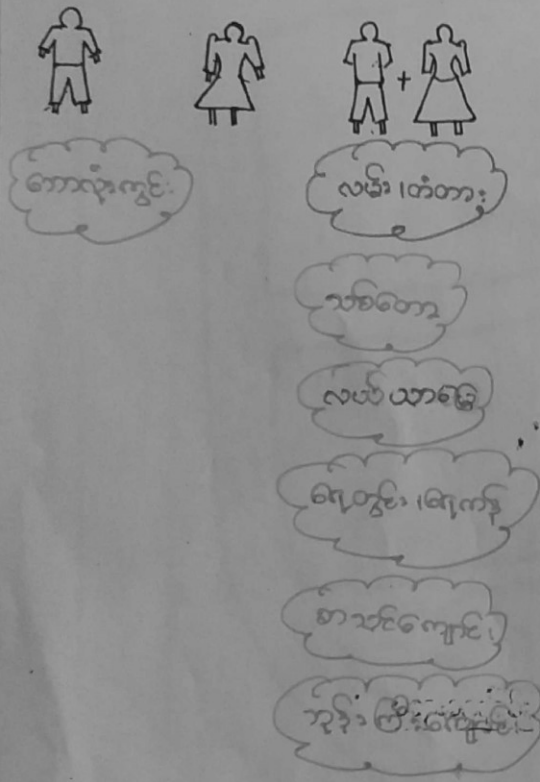 ဘောလုံးကွင်း
လမ်း၊တံတား
သစ်တော
လယ်ယာမြေ
ရေတွင်း၊ရေကန်
စာသင်ကျောင်း
ဘုန်းကြီးကျောင်း